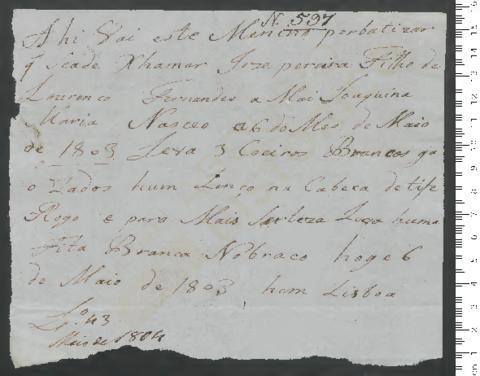 N. 597
Ahi Vai este Menino porbatizar
q̃ scade Xhamar Joze pereira Filho de
Lourenco Fernandes a Mai Joaquina
Maria Nasceo a 6 do Mes de Maio
de 1803 Leva 3 Coeiros Brancos ga
o Zados hum Lenço na Cabeca de tife
Rogo e para Mais Sarteza Leva huma
Fita Branca Nobraco hoge 6
de Maio de 1803 hem Lisboa
Lº 43
Maio de 1804